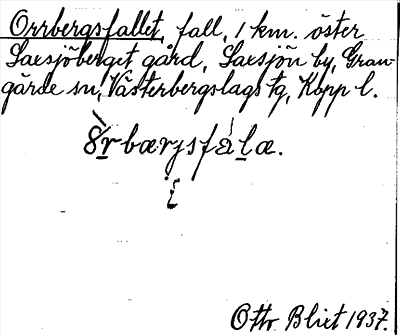 Orrbergsfallet, fall, 1 km. öster
Saxsjöberget gård, Saxsjön by, Gran-
gärde sn, Västerbergslags tg, Kopp l.
8̀rbærjsfálæ.
Otto Blixt 1937.